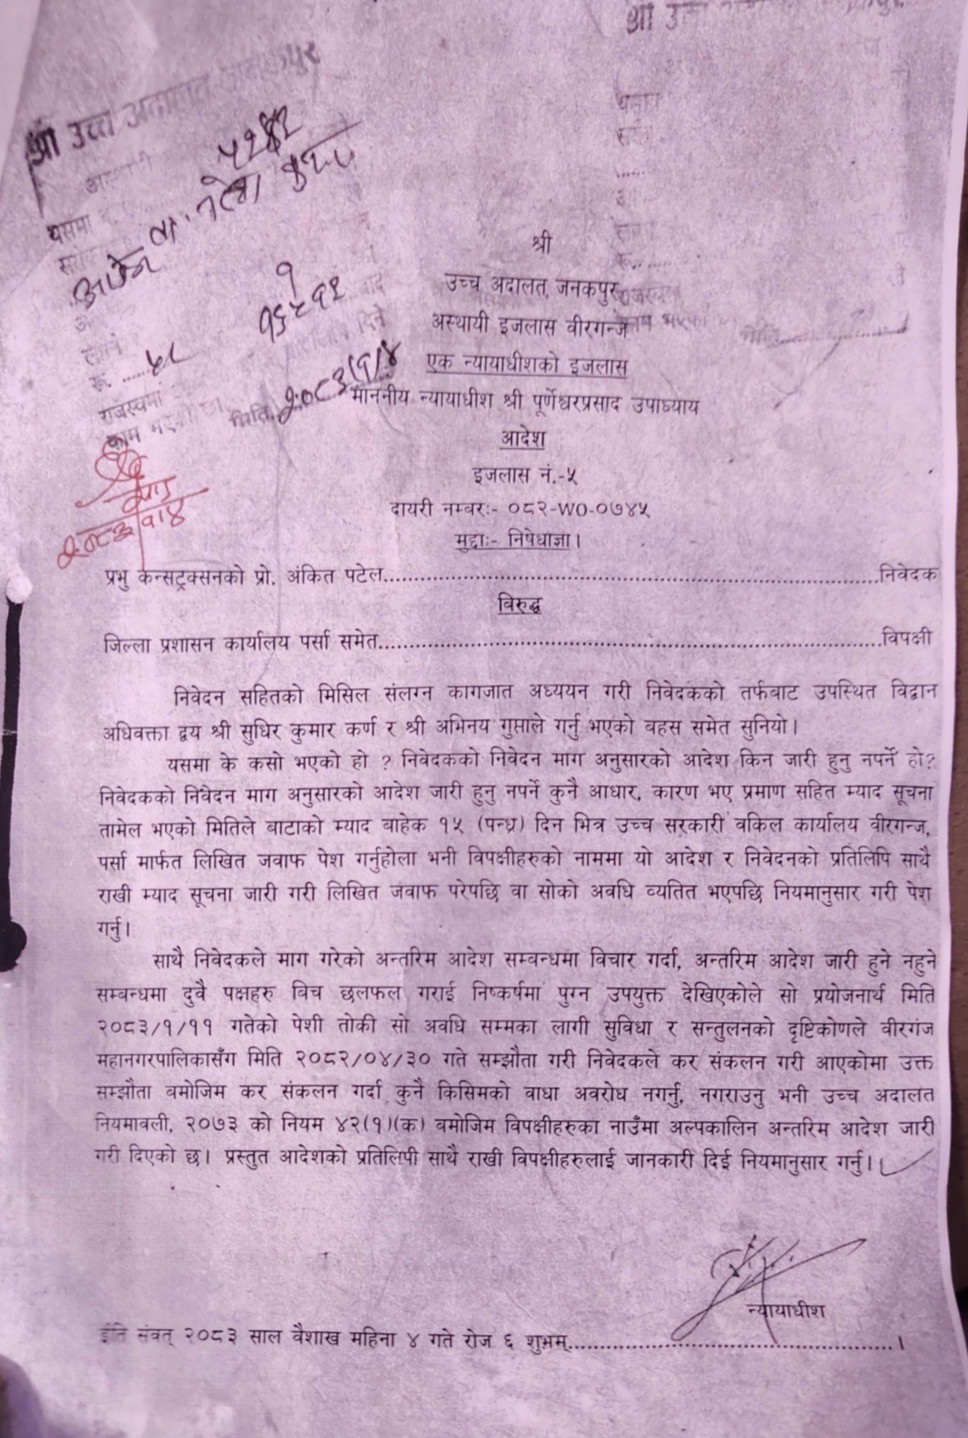 श्री उच्च अदालत जनकपुर
५२४२
यसमा
१
१६५१२
रु. ..... ५८
राजस्वमा
मिति. २०८३/१/४
२०८३/१/४
श्री
उच्च अदालत, जनकपुर
अस्थायी इजलास वीरगन्ज
एक न्यायाधीशको इजलास
माननीय न्यायाधीश श्री पूर्णेश्वरप्रसाद उपाध्याय
आदेश
इजलास नं.-५
दायरी नम्बरः- ०८२-WO-०७४५
मुद्दाः- निषेधाज्ञा।
प्रभु कन्सट्रक्सनको प्रो. अंकित पटेल..........निवेदक
बिरुद्ध
जिल्ला प्रशासन कार्यालय पर्सा समेत..........विपक्षी
निवेदन सहितको मिसिल संलग्न कागजात अध्ययन गरी निवेदकको तर्फबाट उपस्थित विद्वान
अधिवक्ता द्वय श्री सुधिर कुमार कर्ण र श्री अभिनय गुप्ताले गर्नु भएको बहस समेत सुनियो।
यसमा के कसो भएको हो ? निवेदकको निवेदन माग अनुसारको आदेश किन जारी हुनु नपर्ने हो?
निवेदकको निवेदन माग अनुसारको आदेश जारी हुनु नपर्ने कुनै आधार, कारण भए प्रमाण सहित म्याद सूचना
तामेल भएको मितिले बाटाको म्याद बाहेक १५ (पन्ध्र) दिन भित्र उच्च सरकारी वकिल कार्यालय वीरगन्ज,
पर्सा मार्फत लिखित जवाफ पेश गर्नुहोला भनी विपक्षीहरुको नाममा यो आदेश र निवेदनको प्रतिलिपि साथै
राखी म्याद सूचना जारी गरी लिखित जवाफ परेपछि वा सोको अवधि व्यतित भएपछि नियमानुसार गरी पेश
गर्नु।
साथै निवेदकले माग गरेको अन्तरिम आदेश सम्बन्धमा विचार गर्दा, अन्तरिम आदेश जारी हुने नहुने
सम्बन्धमा दुवै पक्षहरु बिच छलफल गराई निष्कर्षमा पुग्न उपयुक्त देखिएकोले सो प्रयोजनार्थ मिति
२०८३/१/११ गतेको पेशी तोकी सो अवधि सम्मका लागी सुविधा र सन्तुलनको दृष्टिकोणले वीरगंज
महानगरपालिकासँग मिति २०८२/०४/३० गते सम्झौता गरी निवेदकले कर संकलन गरी आएकोमा उक्त
सम्झौता बमोजिम कर संकलन गर्दा कुनै किसिमको बाधा अवरोध नगर्नु, नगराउनु भनी उच्च अदालत
नियमावली, २०७३ को नियम ४२(१)(क) बमोजिम विपक्षीहरुका नाउँमा अल्पकालिन अन्तरिम आदेश जारी
गरी दिएको छ। प्रस्तुत आदेशको प्रतिलिपी साथै राखी विपक्षीहरुलाई जानकारी दिई नियमानुसार गर्नु।
न्यायाधीश
ईति संवत् २०८३ साल वैशाख महिना ४ गते रोज ६ शुभम्..........।